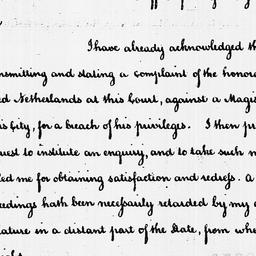 I have already acknowledged th
nsmitting and stating a complaint of the honora
ed Netherlands at this Court, against a Magis
is City, for a breach of his privileges. I then pr
uest to institute an enquiry, and to take such m
led me for obtaining satisfaction and redress. a
eedings hath been necessarily retarded by my a
ature in a distant part of the State, from whe